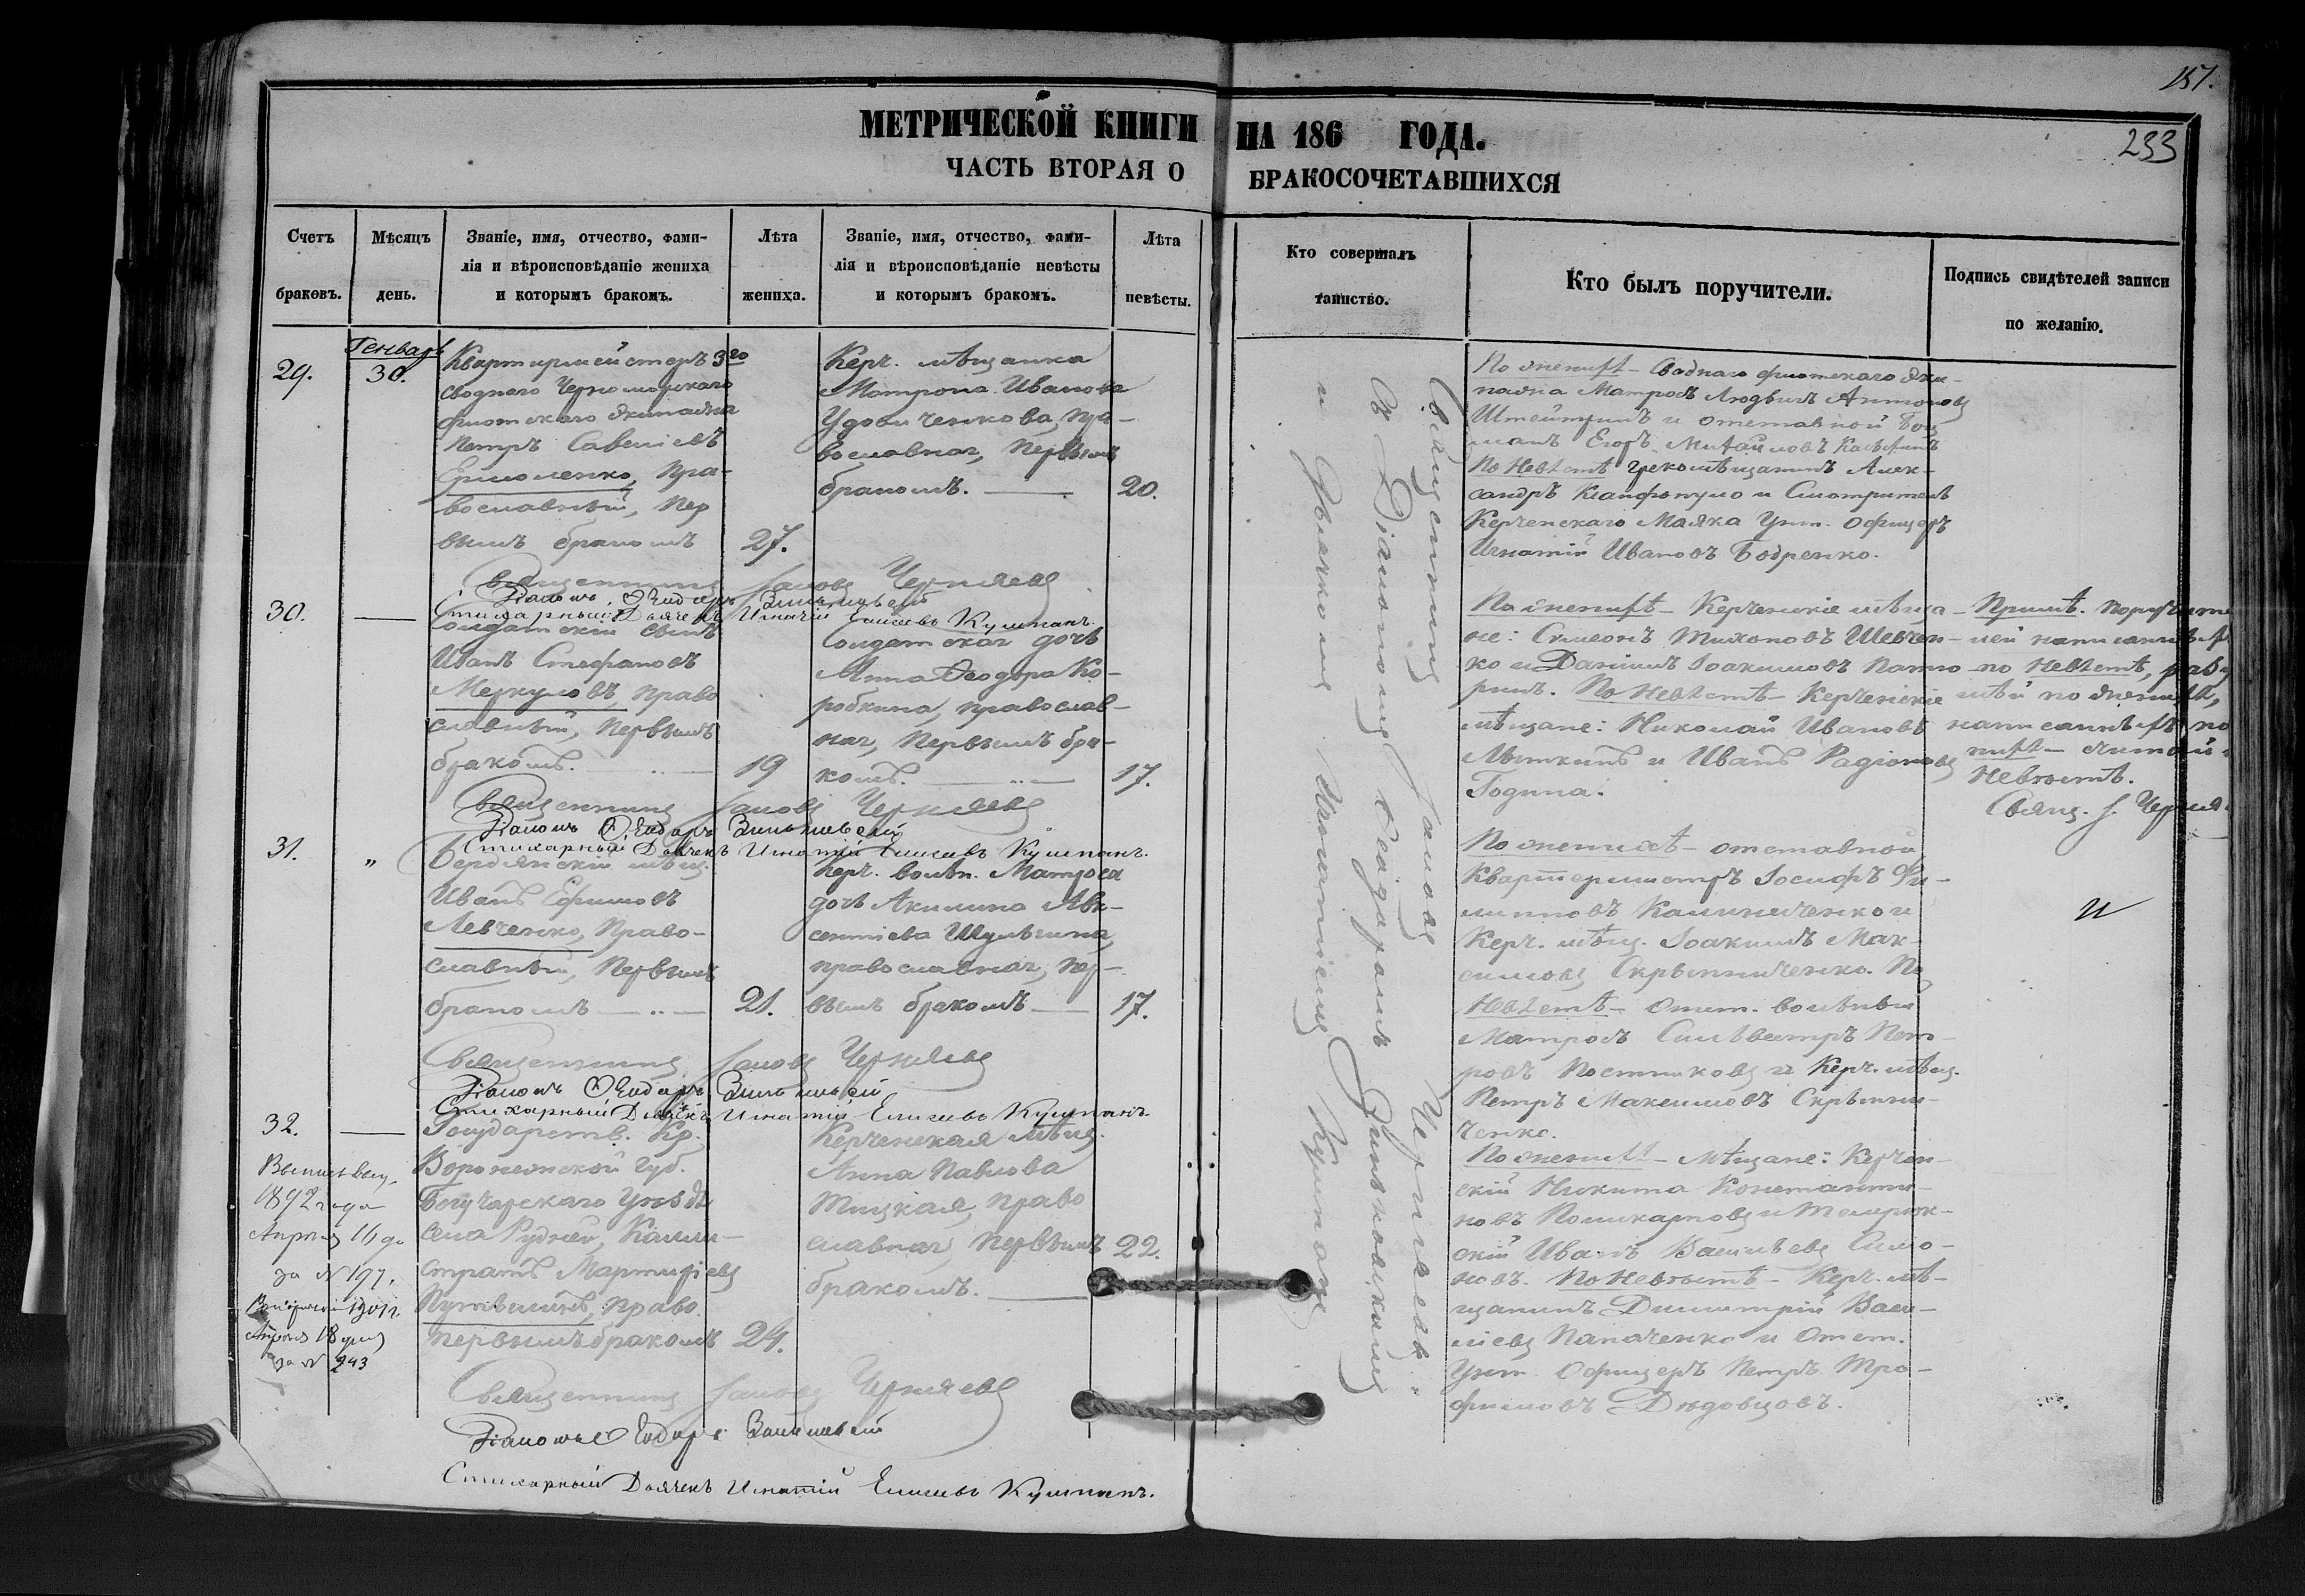 157.
233
МЕТРИЧЕСКОЙ КНИГИ НА 186 ГОДА.
ЧАСТЬ ВТОРАЯ О БРАКОСОЧЕТАВШИХСЯ
Счетъ браковъ.
Мѣсяцъ день.
Званіе, имя, отчество, фами-
лія и вѣроисповѣданіе жениха
и которымъ бракомъ.
Лѣта
жениха.
Званіе, имя, отчество, фами-
лія и вѣроисповѣданіе невѣсты
и которымъ бракомъ.
Лѣта
невѣсты.
Кто совершалъ
таинство.
Кто былъ поручители.
Подпись свидѣтелей записи
по желанію.
29.
Генварь
30.
Квартирмейстеръ 3го
своднаго Черноморскаго
флотскаго экипажа
Петръ Савеліевъ
Ермоленко, Пра-
вославный, Пер
вымъ бракомъ
27.
Керч. мѣщанка
Матрона Иванова
Удовиченкова, пра-
вославная, Первымъ
бракомъ.
20.
По женихѣ - Своднаго флотскаго эки-
пажа Матросъ Людвигъ Антоновъ
и отставной Боц
манъ Егоръ Михайловъ
По Невѣстѣ мѣщанинъ Алек-
сандръ и Смотритель
Керченскаго Маяка Унт. Офицеръ
Игнатій Ивановъ Бодренко.
Священникъ Іаковъ Черняевъ
Діаконъ Ѳеодоръ Зиньковскій
Стихарный Дьячекъ Игнатій Елисѣевъ Кушпанъ.
30.
Солдатскій сынъ
Иванъ Стефановъ
Меркуловъ, право
славный, Первымъ
бракомъ.
19
Солдатская дочь
Анна Ѳеодора Ко-
робкина, православ-
ная, Первымъ бра-
комъ.
17.
По женихѣ - Керченскіе мѣща-
не: Симеонъ Тихоновъ Шевчен-
ко и Даніилъ Іоакимовъ
По Невѣстѣ - Керченскіе
мѣщане: Николай Ивановъ
Лыткинъ и Иванъ Радіоновъ
Година.
Примѣ.
по Невѣстѣ,
по женихѣ,
Невѣстѣ.
Свящ. І. Черня
Священникъ Іаковъ Черняевъ
Діаконъ Ѳеодоръ Зиньковскій
Стихарный Дьячекъ Игнатій Елисѣевъ Кушпанъ.
31.
"
Бердянскій мѣщ.
Иванъ Ефимовъ
Левченко, Право-
славный, Первымъ
бракомъ
21.
Керч. вольн. Матроса
дочь Акилина Авк-
сентіева Шульгина,
православная, Пер-
вымъ бракомъ
17.
По женихѣ - отставной
Квартермистръ Іосифъ Фи-
липповъ Калиниченко и
Керч. мѣщ. Іоакимъ Мак-
симовъ Скрыпниченко. По
Невѣстѣ - Отст. вольный
Матросъ Сильвестръ Пет-
ровъ Постниковъ и Керч. мѣщ.
Петръ Максимовъ Скрыпни-
ченко.
Священникъ Іаковъ Черняевъ
Діаконъ Ѳеодоръ Зиньковскій
Стихарный Дьячекъ Игнатій Елисѣевъ Кушпанъ.
32.
1892 года
Апрѣля 16 дн
за № 197.
1901 г.
Апрѣля 18 дня
за № 243
Государств. Кр.
Воронежской губ.
Богучарскаго Уѣзда
села Каллис-
стратъ
право.
первымъ бракомъ
24.
Керченская мѣщ.
Анна Павлова
Тицкая, право
славная, Первымъ
бракомъ.
22.
По женихѣ - Мѣщане: Керчен-
скій Никита Константи-
новъ Поликарповъ и Темрюк-
скій Иванъ Васильевъ Симо-
новъ. По Невѣстѣ - Керч. мѣ-
щанинъ Димитрій Васи-
ліевъ Папаченко и Отст.
Унт. Офицеръ Петръ Тро-
фимовъ Дѣдовцовъ.
Священникъ Іаковъ Черняевъ
Діаконъ Ѳеодоръ Зиньковскій
Стихарный Дьячекъ Игнатій Елисѣевъ Кушпанъ.
Священникъ Іаковъ Черняевъ.
съ Діакономъ Ѳеодоромъ Зиньковскимъ
и Дьячкомъ Игнатіемъ Кушпаномъ